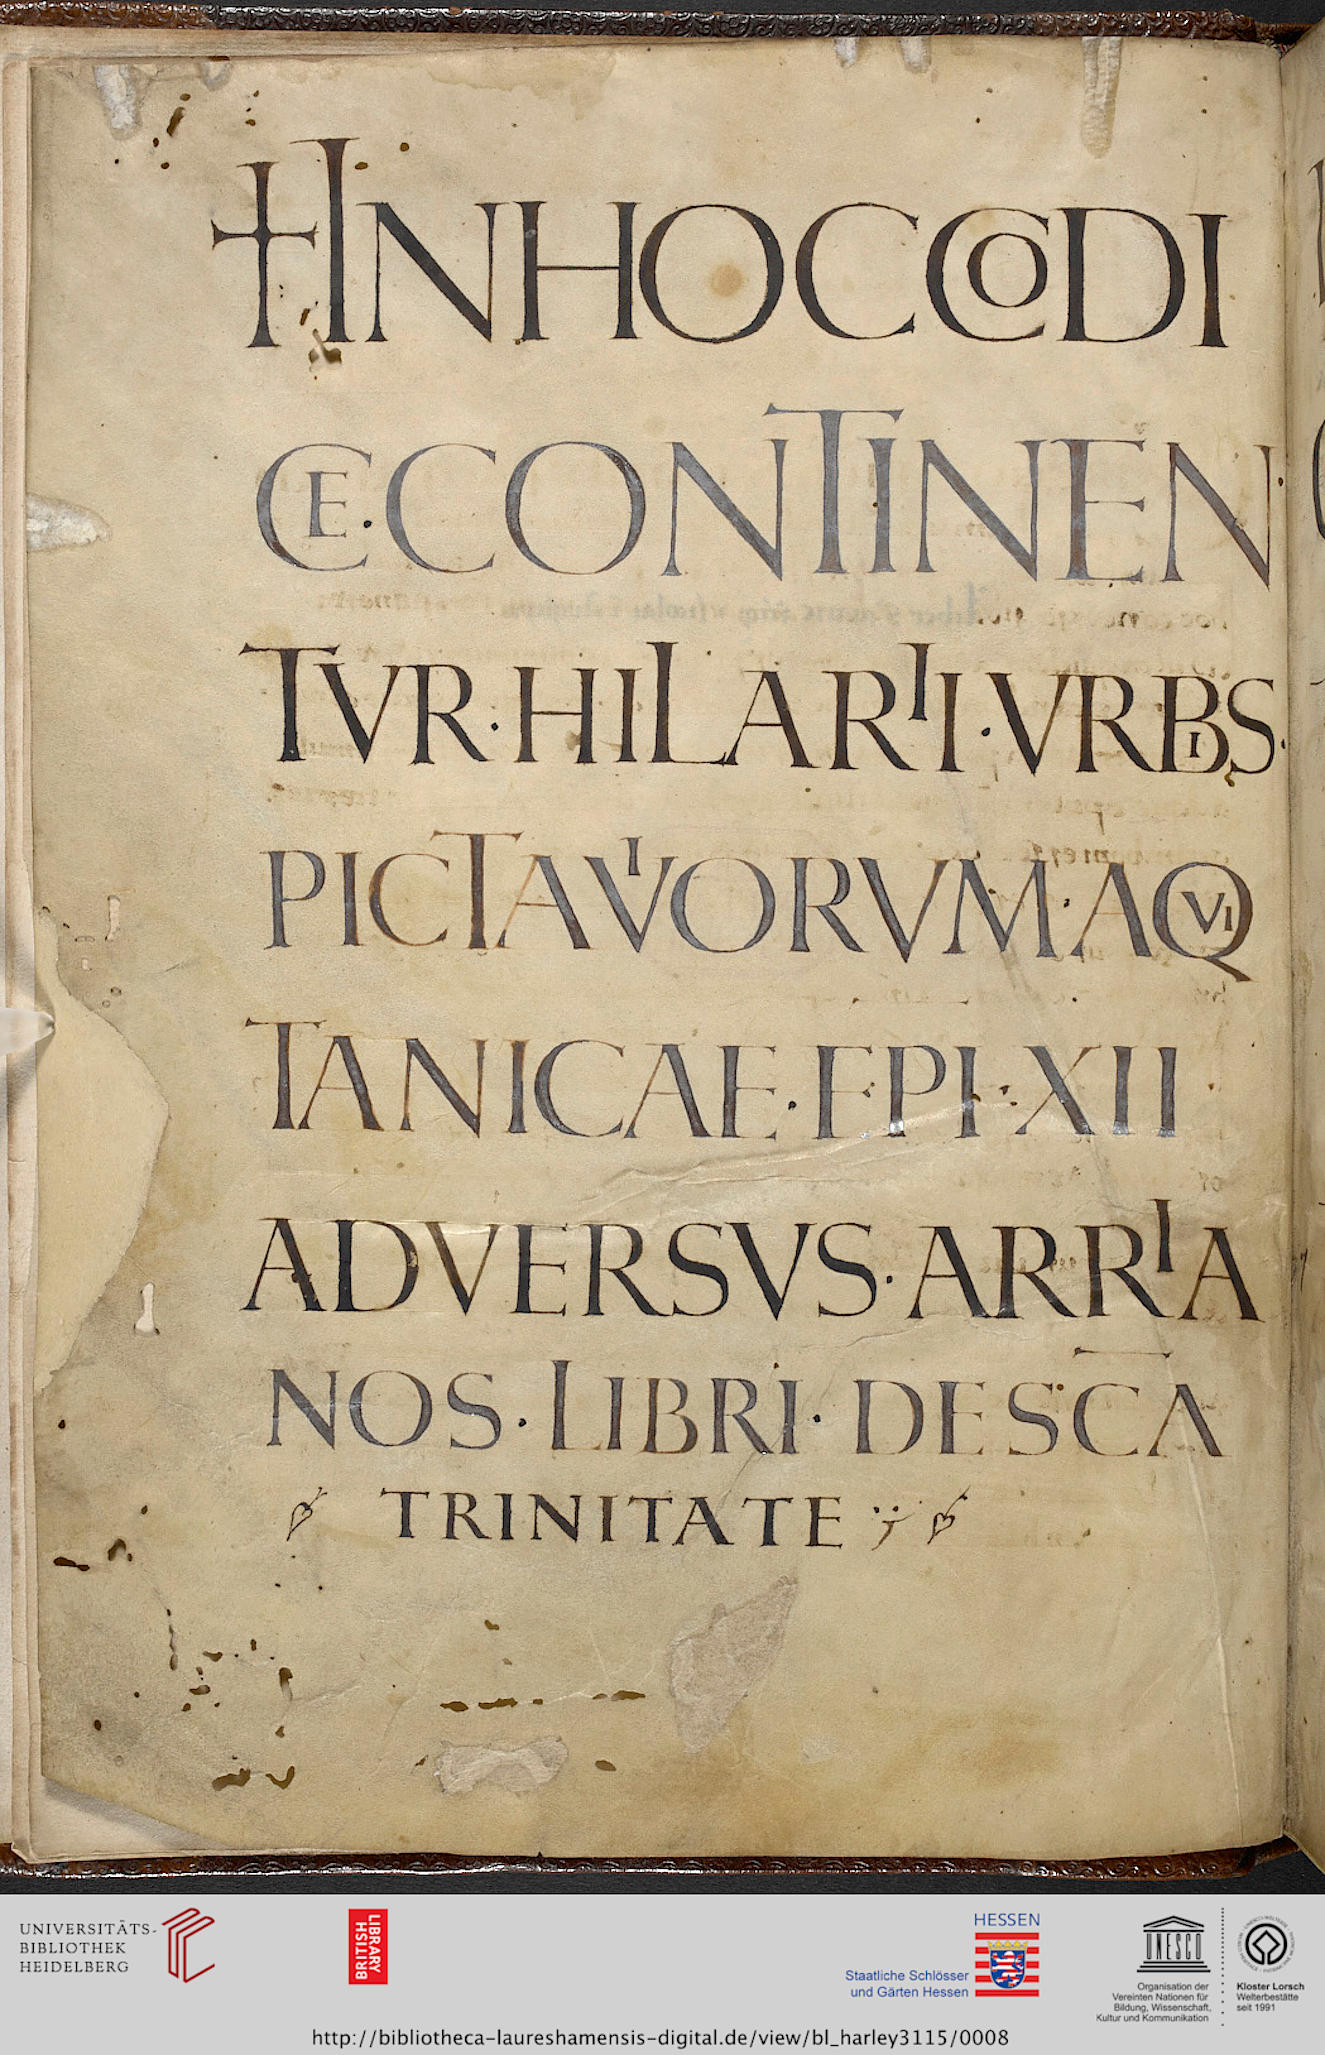 ✝INHOCCODI
CE·CONTINEN·
TVR·HILARII·VRBIS·
PICTAVIORVM·AQVI
TANICAE·EPI·XII
ADVERSVS·ARRIA
NOS·LIBRI·DESCA
TRINITATE
UNIVERSITÄTS-
BIBLIOTHEK
HEIDELBERG
BRITISH
LIBRARY
HESSEN
Staatliche Schlösser
und Gärten Hessen
UNESCO
Organisation der
Vereinten Nationen für
Bildung, Wissenschaft,
Kultur und Kommunikation
Kloster Lorsch
Welterbestätte
seit 1991
http://bibliotheca-laureshamensis-digital.de/view/bl_harley3115/0008